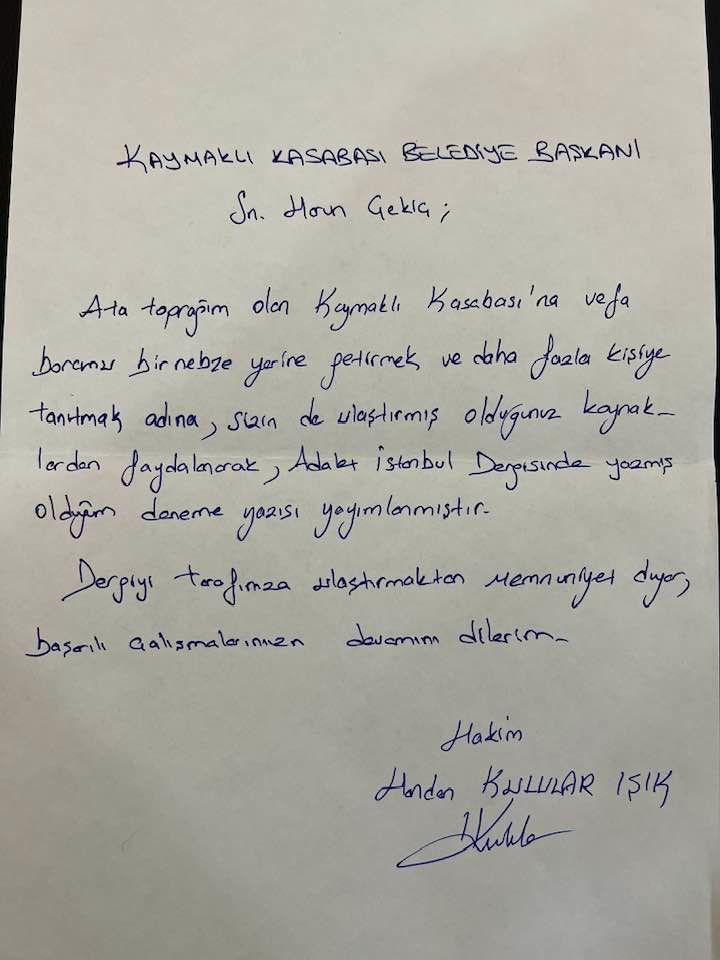 KAYMAKLI KASABASI BELEDİYE BAŞKANI
Sn. Harun Çekiç;
Ata toprağım olan Kaymaklı Kasabası'na vefa
borcumu bir nebze yerine getirmek ve daha fazla kişiye
tanıtmak adına, sizin de ulaştırmış olduğunuz kaynak-
lardan faydalanarak, Adalet İstanbul Dergisinde yazmış
olduğum deneme yazısı yayımlanmıştır.
Dergiyi tarafınıza ulaştırmaktan memnuniyet duyar,
başarılı çalışmalarınızın devamını dilerim.
Hakim
Handan KULULAR IŞIK